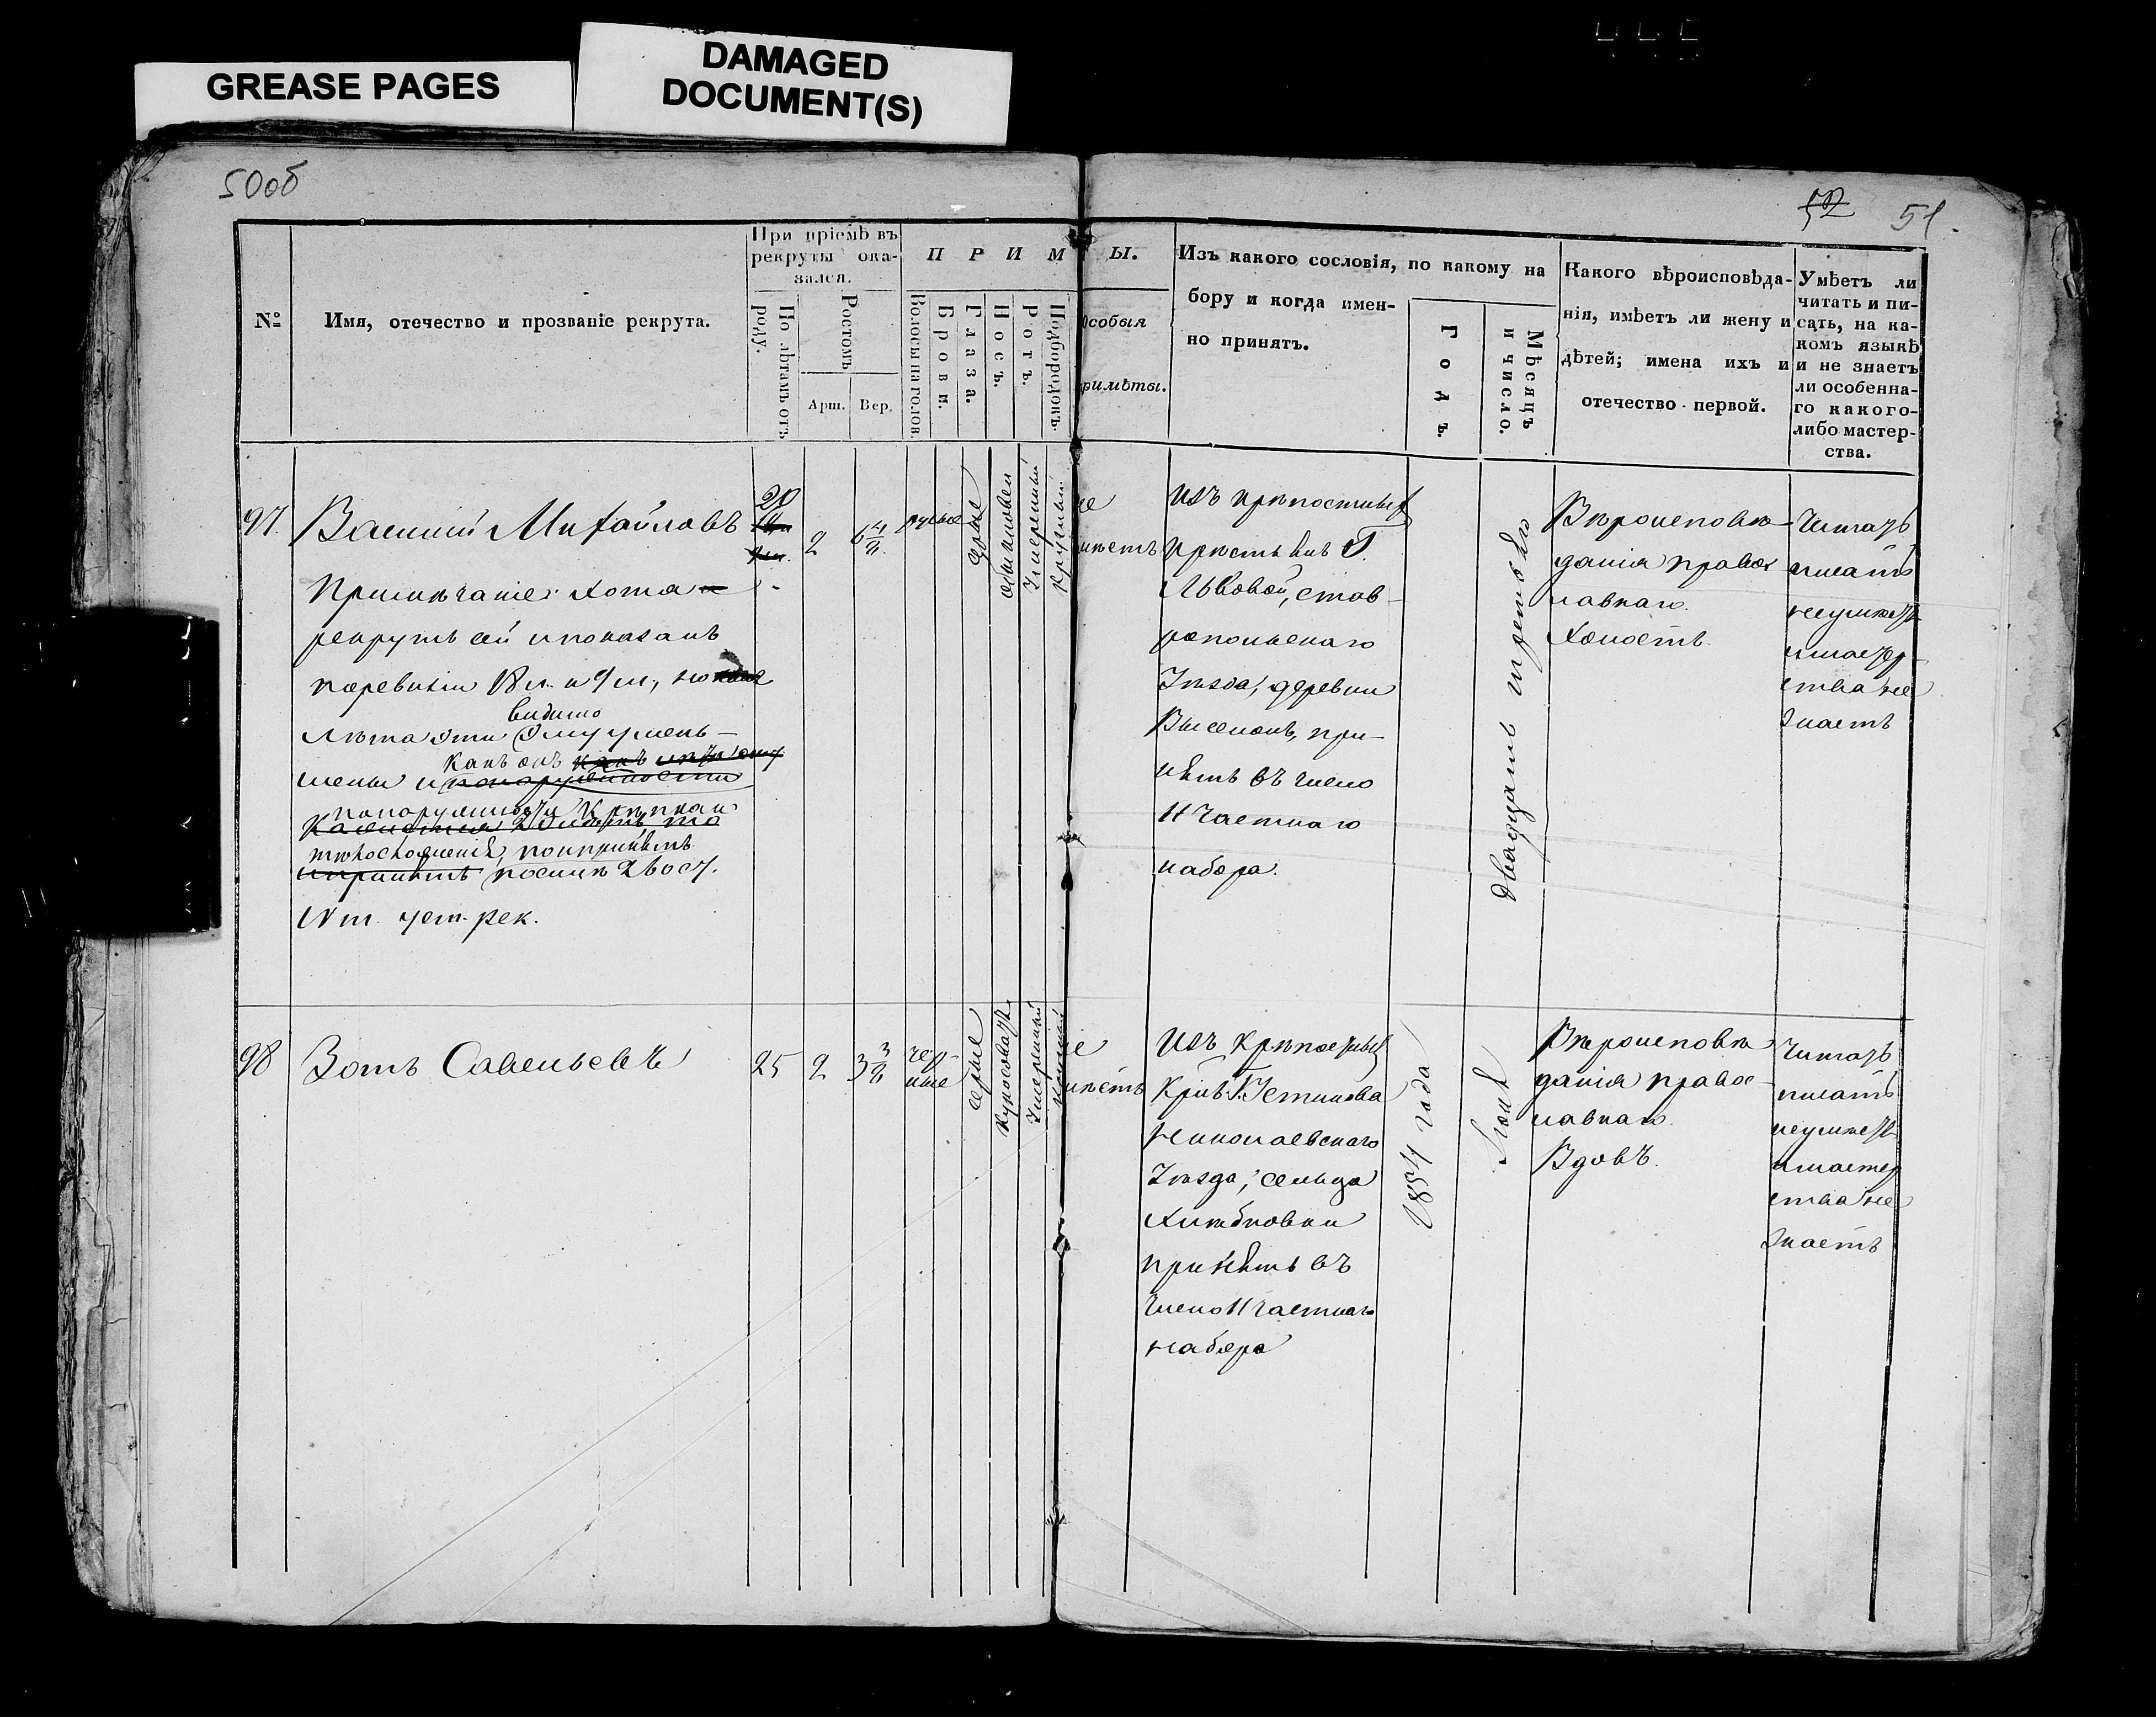 GREASE PAGES
DAMAGED
DOCUMENT(S)
50об
52
51.
№
Имя, отечество и прозваніе рекрута.
При пріемѣ въ
рекруты ока-
зался.
По лѣтамъ отъ
роду.
Ростомъ
Арш.
Вер.
П Р И М
Волосы на голов.
Брови.
Глаза.
Носъ.
Ротъ.
Подбородокъ.
Ы.
особыя
римѣты.
Изъ какого сословія, по какому на
бору и когда имен-
но принятъ.
Годъ.
Мѣсяцъ
и число.
Какого вѣроисповѣда-
нія, имѣетъ ли жену и
дѣтей; имена ихъ и
отечество первой.
Умѣетъ ли
читать и пи-
сать, на ка-
комъ языкѣ
и не знаетъ
ли особенна-
го какого-
либо мастер-
ства.
97.
Василій Михайловъ
Примѣчаніе: Хотя и
рекрутъ сей и показанъ
по ревизіи 18 л. и 9 м., но
видимо
лѣта эти ему умень-
шены и
какъ онъ
по наружности
Nт. уст. рек.
20
2
6 4/8
русые
сѣрые
обыкновен
Умеренный
круглый
ѣетъ
Изъ крѣпостныхъ
крестьянъ Г.
Львовой, став-
ропольскаго
Уѣзда, деревни
Выселокъ, при-
нятъ въ число
11 Частнаго
набора.
двадцать третьяго
Вѣроисповѣ-
данія правос
лавнаго.
Холостъ.
Читать
писать
неумѣетъ
и мастер-
ства не
знаетъ
98
Зотъ Савельевъ
25
2
3 3/8
чер-
ные
сѣрые
курносоватъ
Умеренный
ѣетъ
Изъ крѣпостныхъ
Крив. Г. Устинова
Николаевскаго
Уѣзда, сельца
принятъ въ
число 11 частнаго
набора
1854 года
Іюня
Вѣроисповѣ
данія правос-
лавнаго.
Вдовъ.
Читать
писать
неумѣетъ
и мастер
ства не
знаетъ